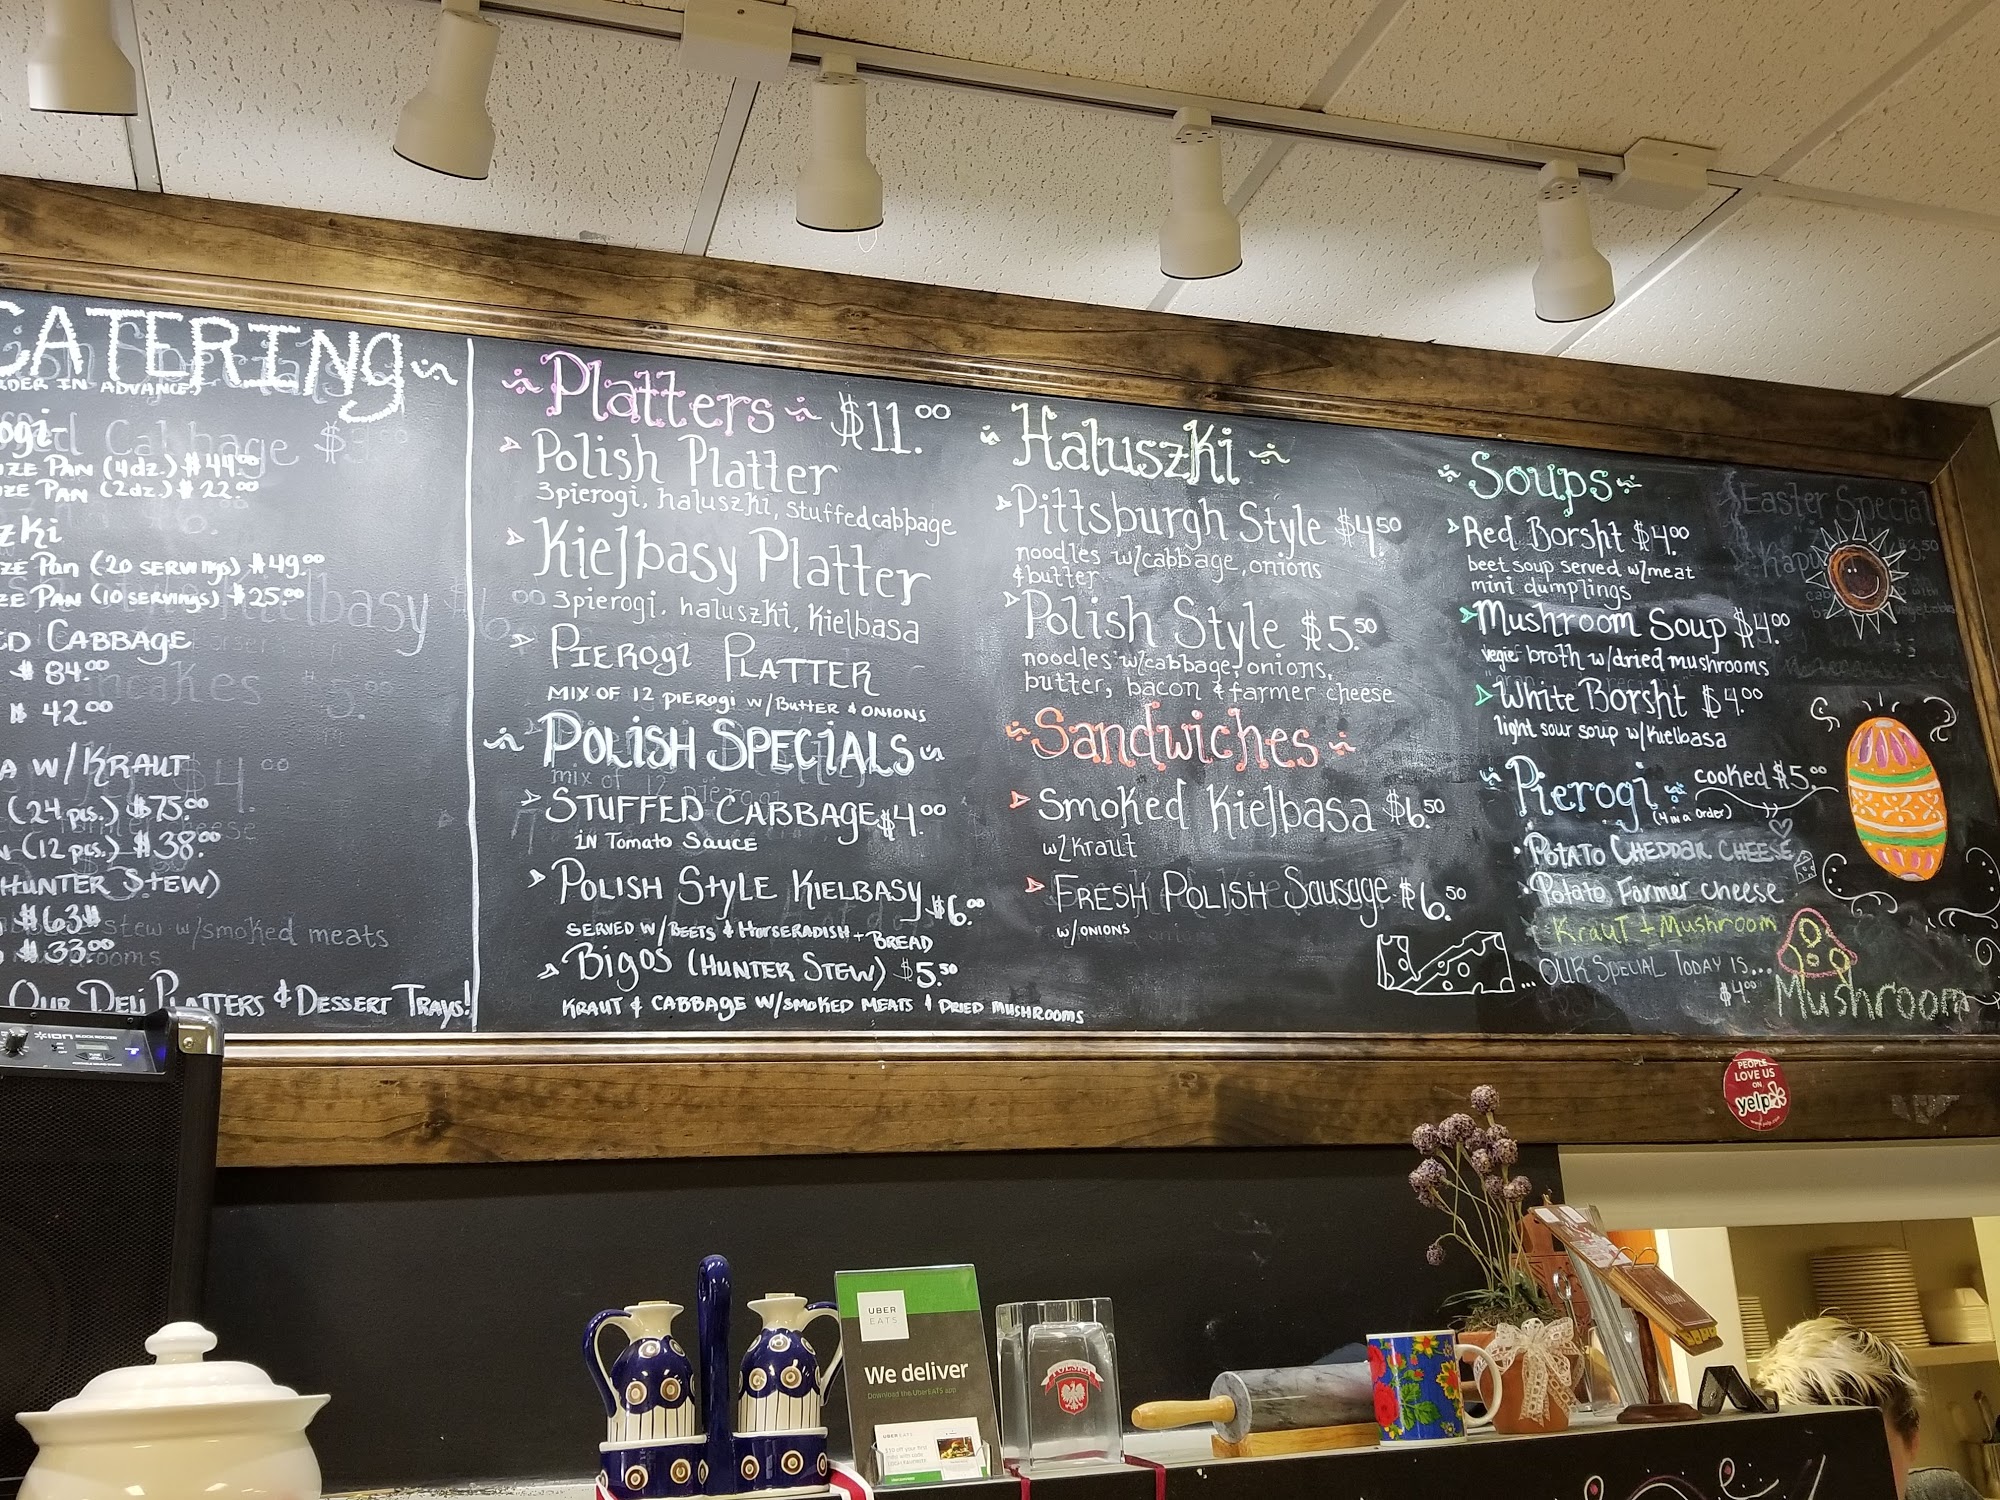 CATERING
ORDER IN ADVANCE
PAN (4dz.) $44.00
PAN (2dz.) $22.00
PAN (20 SERVINGS) $49.00
PAN (10 SERVINGS) $25.00
CABBAGE
$84.00
$42.00
W/KRAUT
(24 pcs.) $75.00
(12 pcs.) $38.00
(HUNTER STEW)
$63
$33.00
OUR DELI PLATTERS & DESSERT TRAYS!
Platters $11.00
Polish Platter
3 pierogi, haluszki, stuffed cabbage
Kielbasy Platter
3 pierogi, haluszki, kielbasa
PIEROgi PLATTER
MIX OF 12 PIEROgi W/BUTTER & ONIONS
POLISH SPECiALS
STUFFED CABBAGE $4.00
iN Tomato SAUCE
POLISH STYLE KIELBASY $6.00
SERVED W/ BEETS & HORSERADISH + BREAD
Bigos (HUNTER STEW) $5.50
KRAUT & CABBAGE W/SMOKED MEATS & DRIED MUSHROOMS
Haluszki
Pittsburgh Style $4.50
noodles w/cabbage, onions
& butter
Polish Style $5.50
noodles w/cabbage, onions,
butter, bacon & farmer cheese
Sandwiches
Smoked Kielbasa $6.50
w/kraut
FRESH POLISH Sausage $6.50
w/ONIONS
Soups
Red Borsht $4.00
beet soup served w/meat
mini dumplings
Mushroom Soup $4.00
vegie broth w/dried mushrooms
White Borsht $4.00
light sour soup w/kielbasa
Pierogi cooked $5.00
(4 in a order)
POTATO CHEDDAR CHEESE
Potato Farmer cheese
KrauT + Mushroom
...OUR SPECIAL TODAY IS...
$4.00
Mushroom
Easter Special
PEOPLE
LOVE US
ON
yelp
www.yelp.com
iON BLOCK ROCKER
UBER
EATS
We deliver
Download the UberEATS app
POLSKA